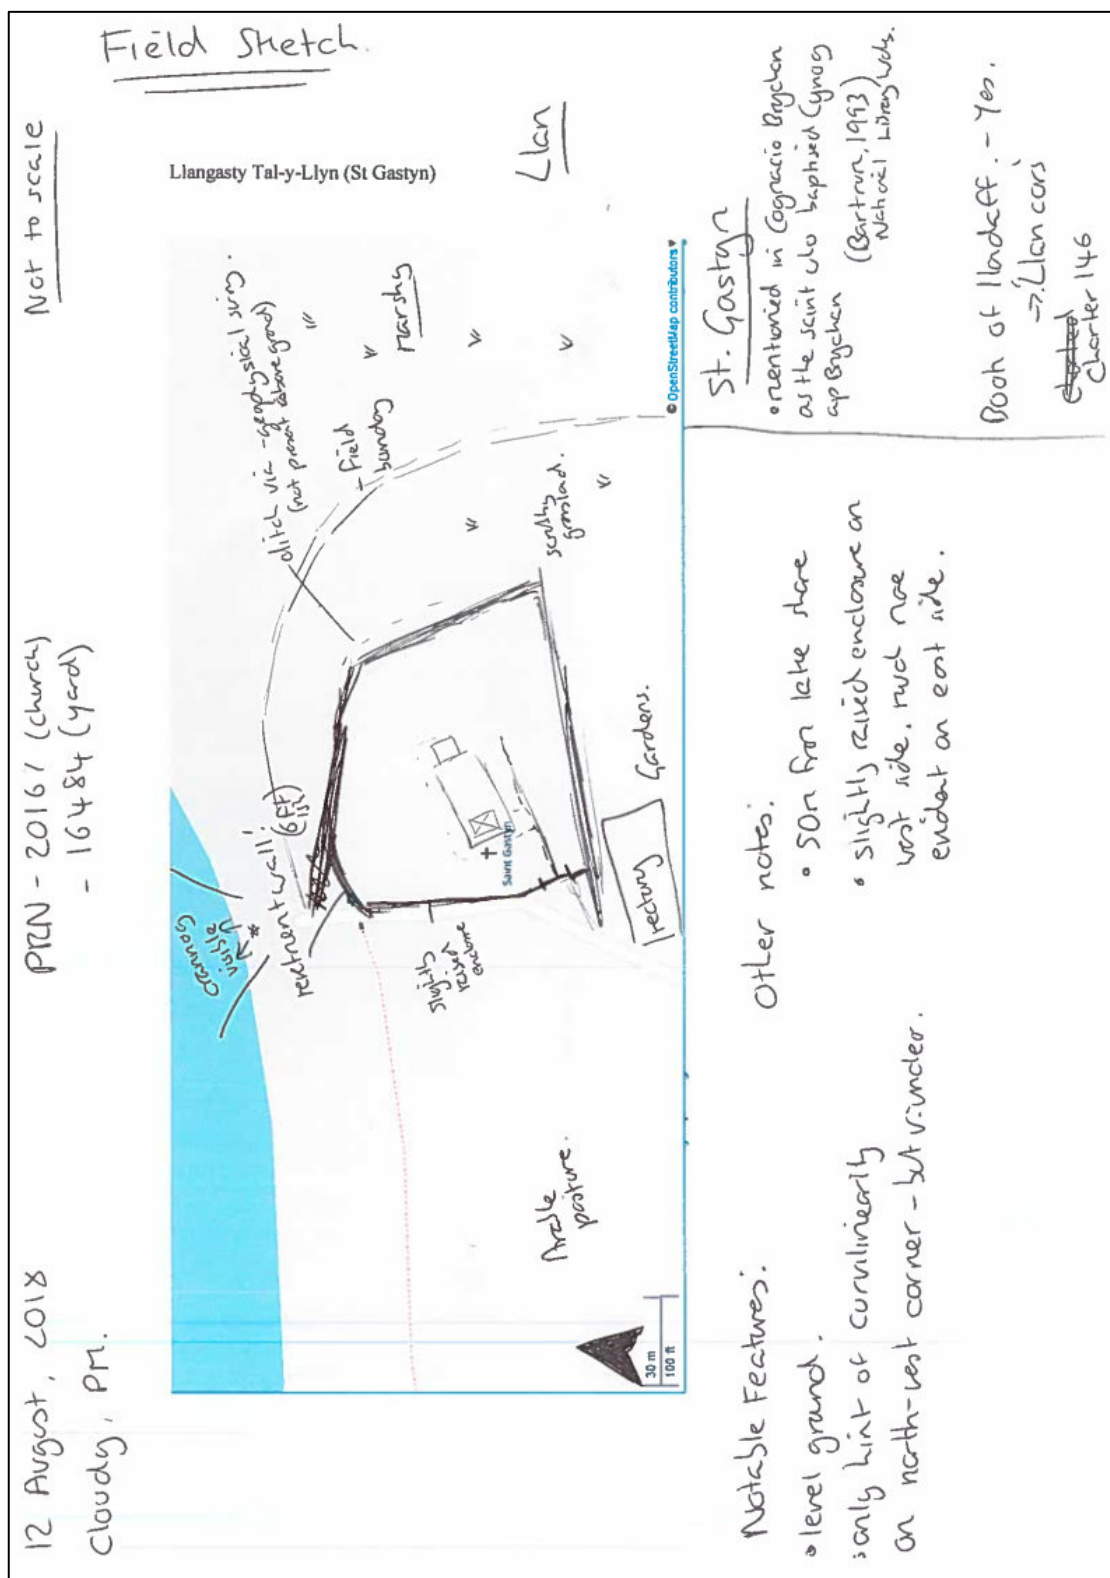 Field Sketch.
12 August, 2018
Cloudy, PM.
PRN - 20167 (church)
- 16484 (yard)
Not to scale
Llangasty Tal-y-Llyn (St Gastyn)
Llan
crannog
visible
*
retrent wall!
(6Ft
ditch via - geophysical survy.
(not present above ground)
- field
bundoy
marshy
scrubby
grassland.
Saint Gastyn
slightly
raised
rectory
Gardens.
Arable
pasture.
30 m
100 ft
© OpenStreetMap contributors
Notable Features:
• level ground.
• only hint of curvilinearity
on north-west corner - but v. under.
Other notes:
• 50m from lake shore
• slightly raised enclosure on
west side. much more
evident on east side.
St. Gastyn
• mentioned in Cognacio Brychan
as the saint who baptised Cynog
ap Brychan
(Bartrum, 1993)
National Library Wales.
Book of Llandaff. - Yes.
→ 'Llan cors'
Charter 146